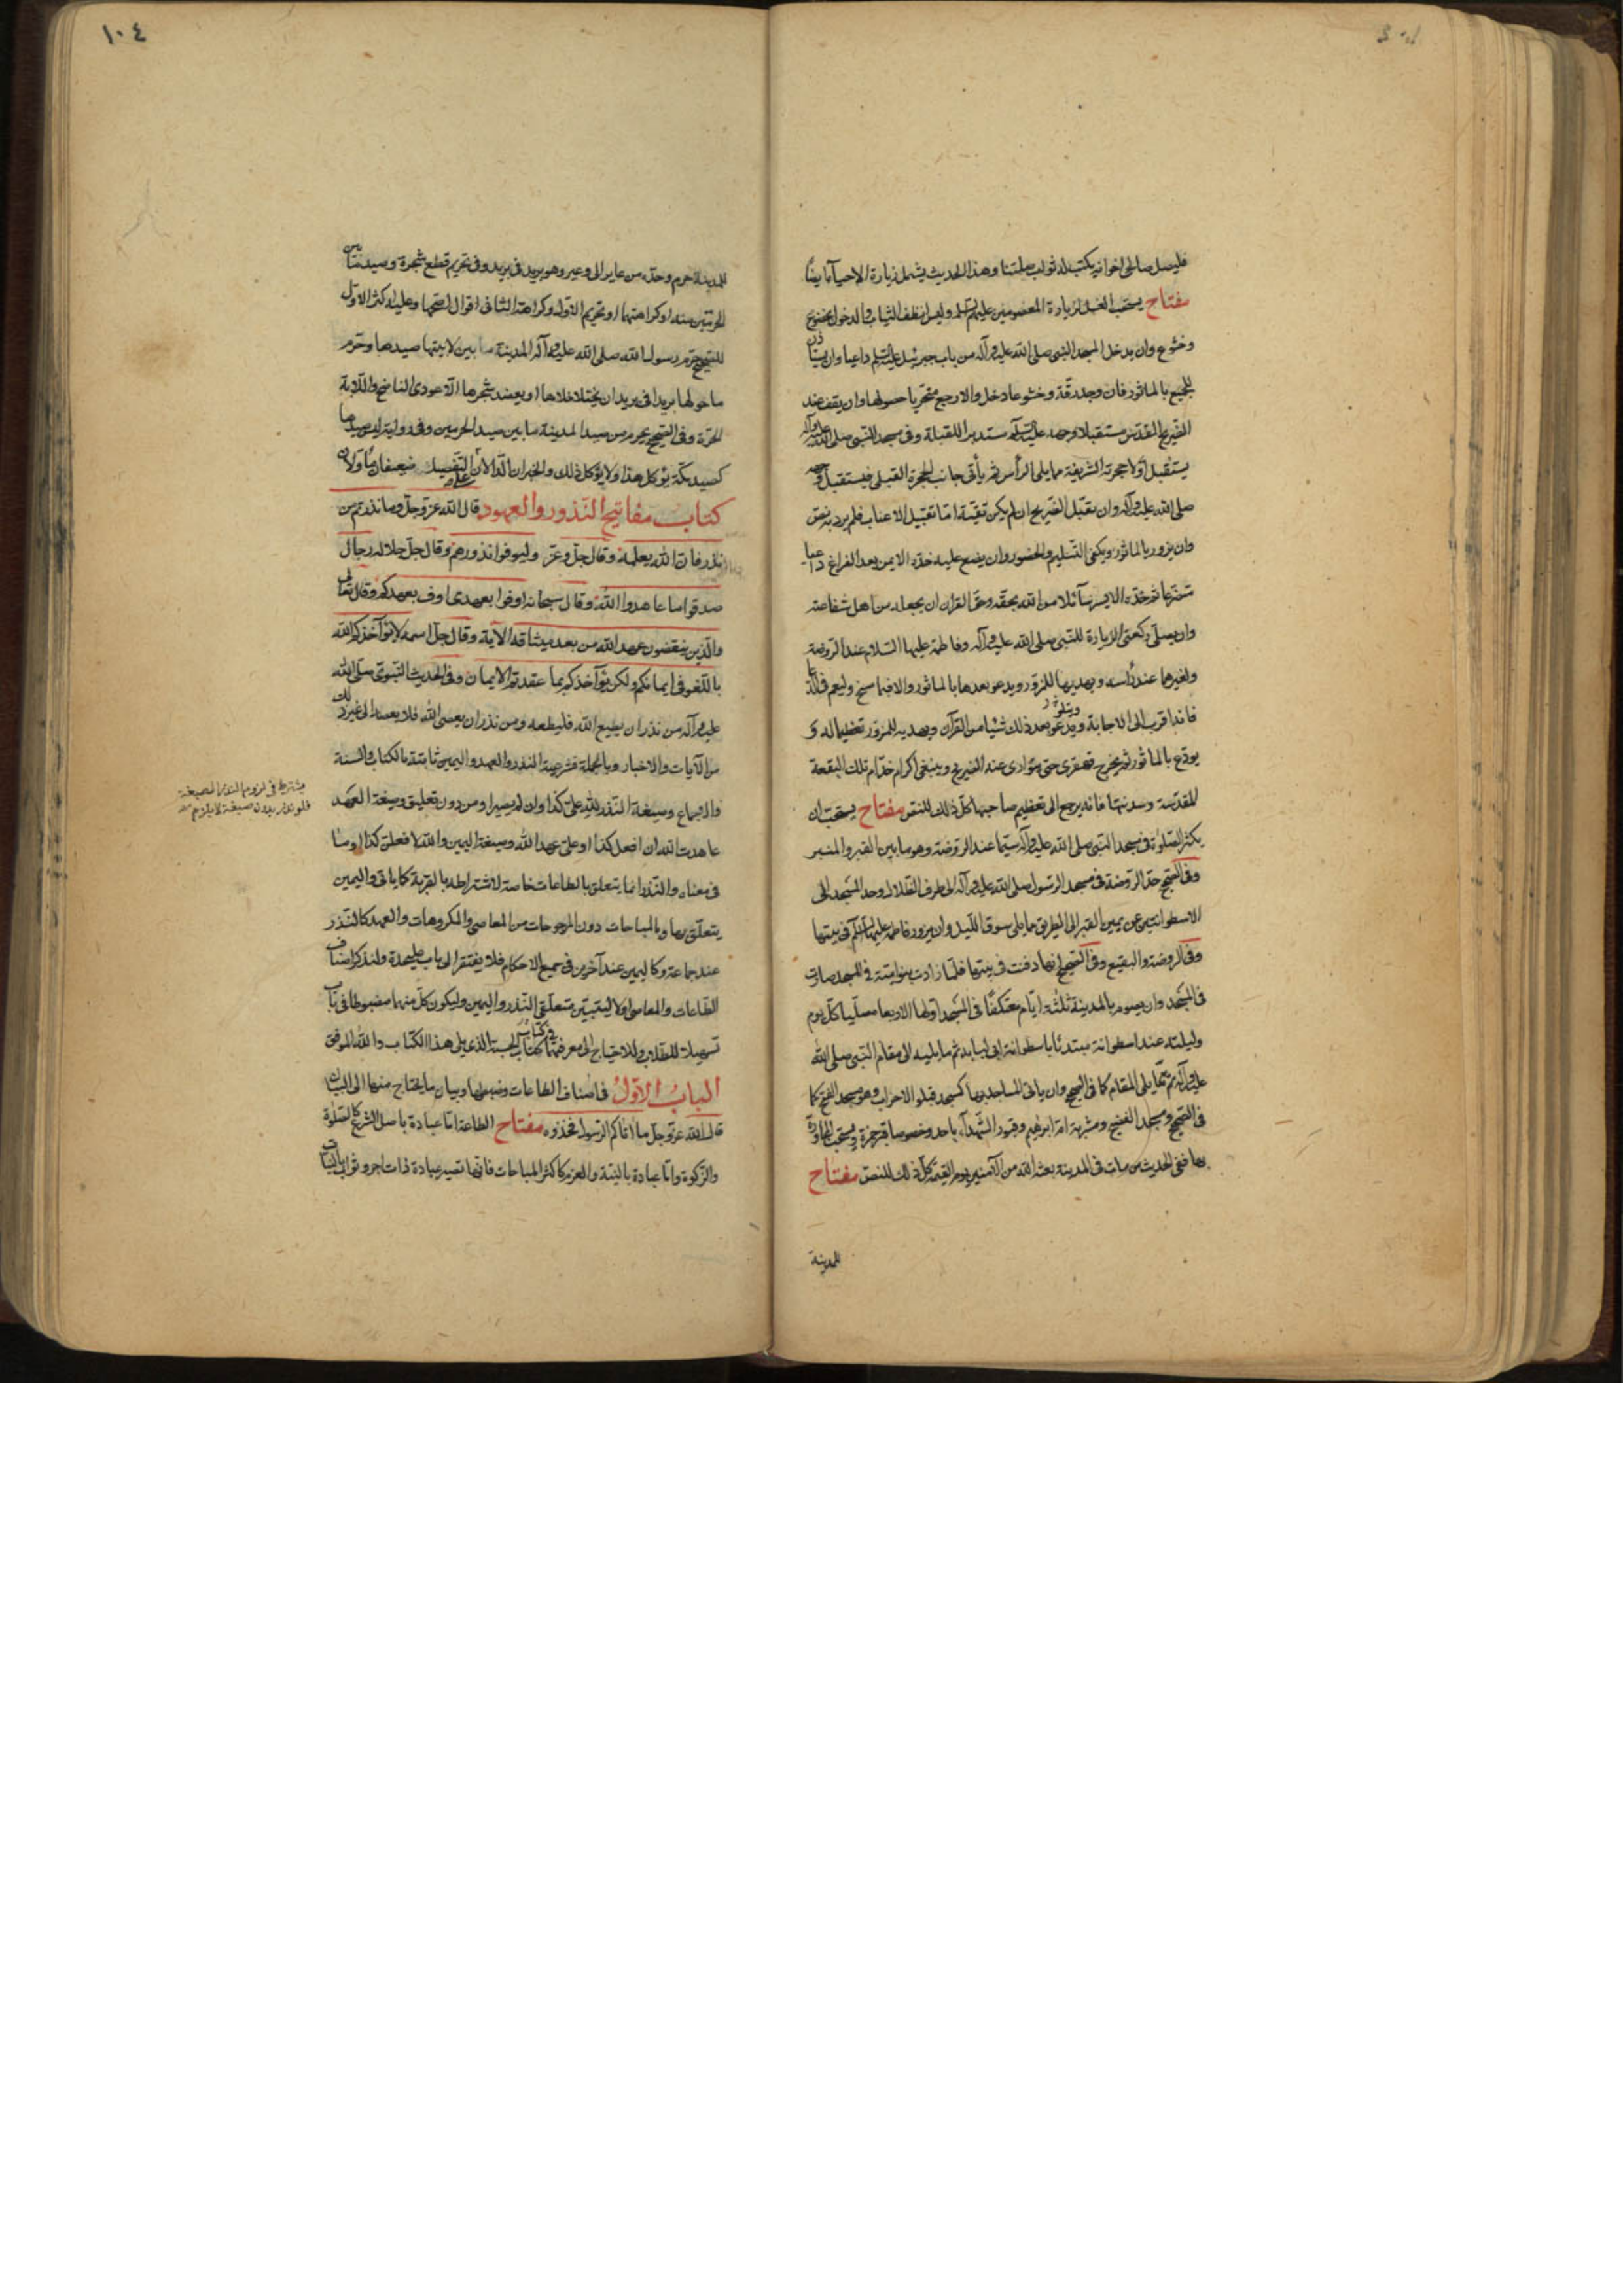 فليصل صالحى اخوانه يكتب له ثواب صلتنا وهذا الحديث يشمل زيارة الاحياء ايضًا
مفتاح يستحب الغسل لزيارة المعصومين عليهم السلم ولبس انظف الثياب والدخول بخضوع
وخشوع وان يدخل المسجد النبى صلى الله عليه وآله من باب جبرئيل عليه السلم داعيا وان يستأذن
للجميع بالماثور فان وجد رقّة وخشوعا دخل والا رجع متحرّيا حصولها وان يقف عند
الضريح المقدّس مستقبلا وجهه عليه السلم مستدبرا للقبلة وفى مسجد النبى صلى الله عليه وآله
يستقبل اولا حجرته الشريفة مما يلى الرأس ثم يأتى جانب الحجرة القبلى فيستقبل وجهه
صلى الله عليه وآله وان يقبّل الضريح ان لم يكن تقيّة امّا تقبيل الاعتاب فلم يرد به نصّ
وان يزور بالماثور ويكفى التسليم والحضور وان يضع عليه خدّه الايمن بعد الفراغ داعيا
متضرعا ثم خدّه الايسر سآئلا من الله بحقّه وحقّ القرآن ان يجعله من اهل شفاعته
وان يصلّى ركعتى الزيارة للنبى صلى الله عليه وآله وفاطمة عليها السلام عند الروضة
ولغيرهما عند رأسه ويهديها للمزور ويدعو بعدها بالماثور والا فبما سنح وليعم فى الدعا
فانه اقرب الى الاجابة ويتلو بعد ذلك شيئا من القرآن ويهديه للمزور تعظيما له و
يودّع بالماثور ثم يخرج قهقرى حتى يتوارى عنه الضريح وينبغى اكرام خدّام تلك البقعة
المقدّسة وسدنتها فانه يرجع الى تعظيم صاحبها كلّ ذلك للنصّ مفتاح يستحب ان
يكثر الصلوة فى مسجد النبى صلى الله عليه وآله سيّما عند الروضة وهو ما بين القبر والمنبر
وفى الصحيح حدّ الروضة فى مسجد الرسول صلى الله عليه وآله الى طرف الظلال وحدّ المسجد الى
الاسطوانتين عن يمين القبر الى الطريق مما يلى سوق الليل وان يزور فاطمة عليها السلم فى بيتها
وفى الروضة والبقيع وفى الصحيح انها دفنت فى بيتها فلمّا زادت بنو امية فى المسجد صارت
فى المسجد وان يصوم بالمدينة ثلثة ايّام معتكفًا فى المسجد اولها الاربعا مصليا كلّ يوم
وليلته عند اسطوانة مبتدئا باسطوانة ابى لبابة ثم ما يليه الى مقام النبى صلى الله
عليه وآله ثم ما يلى المقام كما فى الصحيح وان ياتى المساجد بها كمسجد قبا والاحزاب وهو مسجد الفتح كما
فى الصحيح ومسجد الفضيخ ومشربة امّ ابراهيم وقبور الشهدآء باحد وخصوصا قبر حمزة ويستحب المجاورة
بها ففى الحديث من مات فى المدينة بعثه الله من الآمنين يوم القيمة كلّ ذلك للنصّ مفتاح
للمدينة
١٠٤
للمدينة حرم وحدّه من عاير الى وعير وهو بريد فى بريد وفى تحريم قطع شجره وصيد ما بين
الحرّتين منه او كراهتهما او تحريم الاوّل وكراهة الثانى اقوال اصحّها وعليه الاكثر الاوّل
للصحيح حرّم رسول الله صلى الله عليه وآله المدينة ما بين لابتيها صيدها وحرّم
ما حولها بريدا فى بريد ان يختلا خلاها او يعضد شجرها الّا عودى الناضح واللابة
الحرّة وفى الصحيح يحرم من صيد المدينة ما بين صيد الحرمين وفى رواية ليس صيدها
كصيد مكّة يؤكل هذا ولا يؤكل ذلك
كتاب مفاتيح النّذور والعهود قال الله عزّ وجلّ وما نذرتم من
نذر فان الله يعلمه وقال جلّ وعزّ وليوفوا نذورهم وقال جلّ جلاله رجال
صدقوا ما عاهدوا الله وقال سبحانه اوفوا بعهدى اوف بعهدكم وقال تعالى
والّذين ينقضون عهد الله من بعد ميثاقه الآية وقال جلّ اسمه لا يؤآخذكم الله
باللّغو فى ايمانكم ولكن يؤآخذكم بما عقدتم الايمان وفى الحديث النبوىّ صلى الله
عليه وآله من نذر ان يطيع الله فليطعه ومن نذر ان يعصى الله فلا يعصه الى غير ذلك
من الآيات والاخبار وبالجملة فشرعية النذر والعهد واليمين ثابتة بالكتاب والسنة
والاجماع وصيغة النّذر لله علىّ كذا وان لم يسير او من دون تعليق وصيغة العهد
عاهدت الله ان افعل كذا او علىّ عهد الله وصيغة اليمين والله لافعلنّ كذا او ما
فى معناه والنّذر انما يتعلق بالطاعات خاصة لاشتراطه بالقربة كما ياتى واليمين
يتعلّق بها وبالمباحات دون المرجوحات من المعاصى والمكروهات والعهد كالنّذر
عند جماعة وكاليمين عند آخرين فى جميع الاحكام فلا يفتقر الى باب عليحدة ولنذكر اصناف
الطّاعات والمعاصى اولا ليتبيّن متعلّقى النّذر واليمين وليكون كلّ منهما مضبوطا فى باب
تسهيلا للطالبين وللاحتياج الى معرفتها فى كتاب الحسبة الذى يلى هذا الكتاب والله الموفق
الباب الاوّل فى اصناف الطاعات وضبطها وبيان ما يحتاج منها الى البيان
قال الله عزّ وجلّ ما اتاكم الرسول فخذوه مفتاح الطاعة امّا عبادة باصل الشرع كالصلوة
والزكوة وامّا عبادة بالنية والعزم كاكثر المباحات فانّها تصير عبادة ذات اجر وثواب بالنيّات
يشترط فى لزوم النذر الصيغة
فلو نذر بدون صيغة لا يلزم